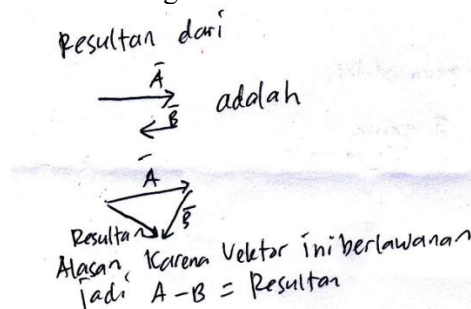 Resultan dari
A
B
adalah
A
B
Resultan
Alasan, Karena Vektor ini berlawanan
jadi A - B = Resultan